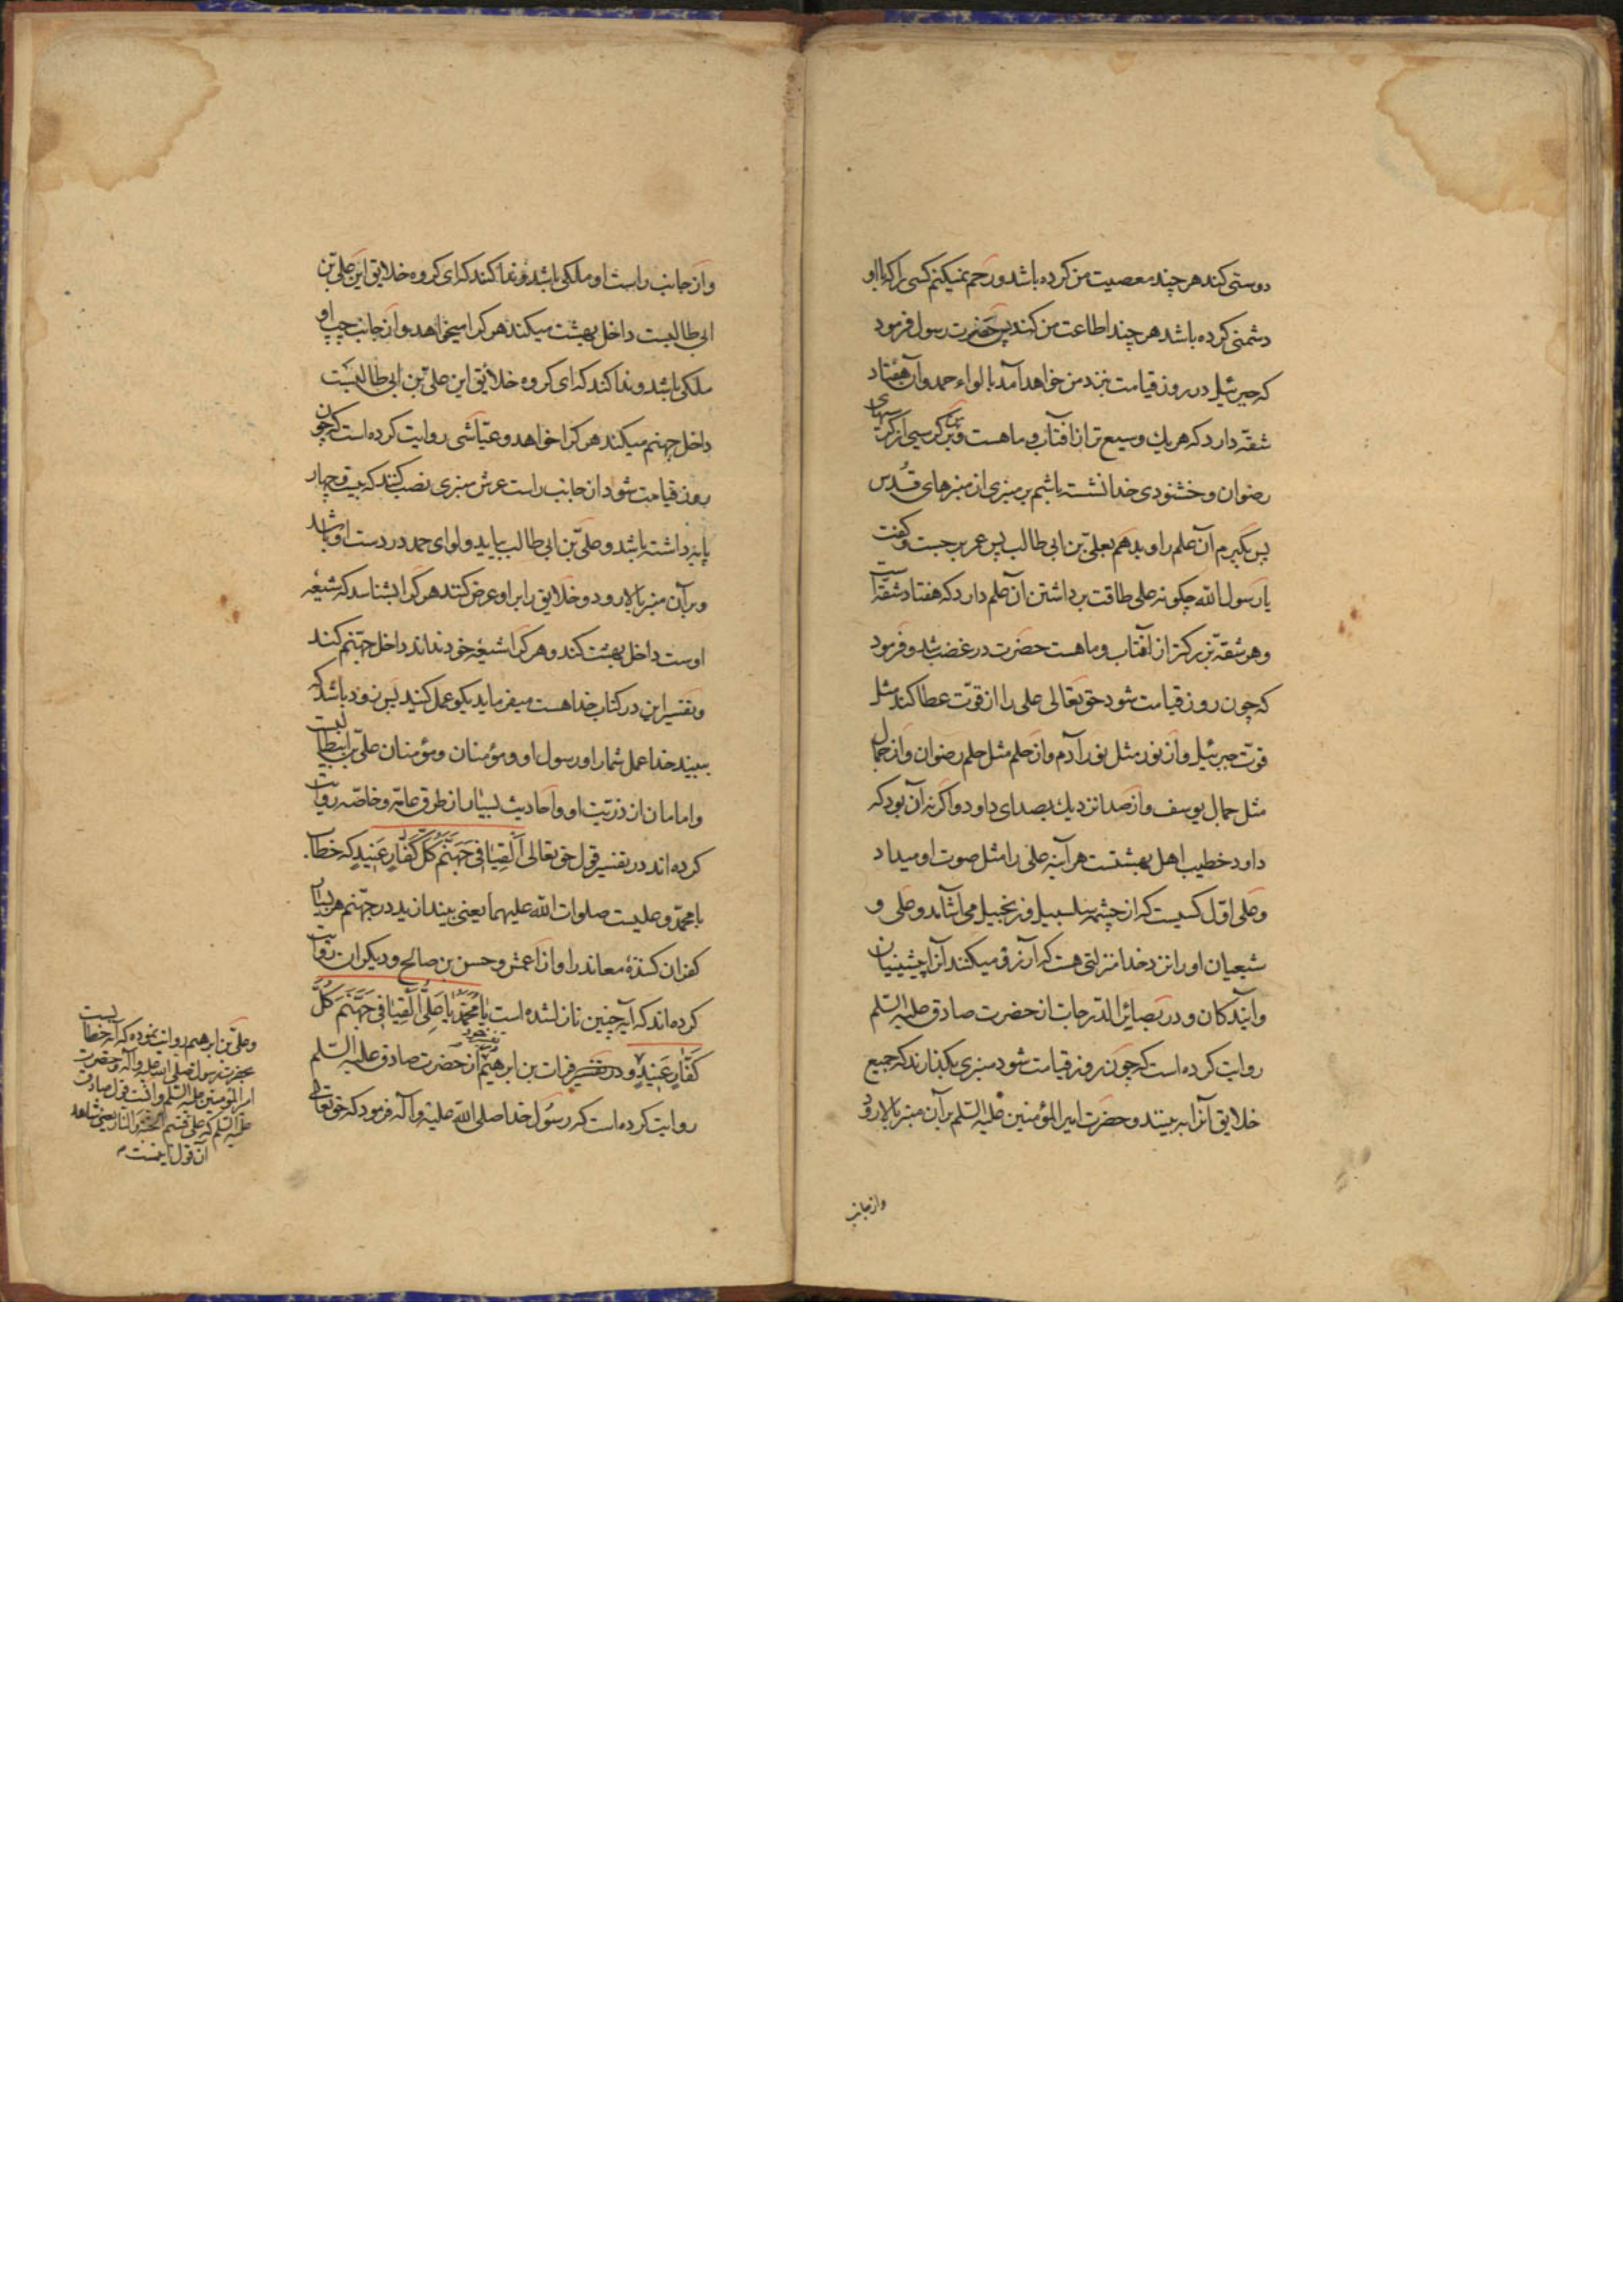 دوستی کند هر چند معصیت من کرده باشد و رحم نمیکنم کسی را که با او
دشمنی کرده باشد هر چند اطاعت من کند پس حضرت رسول فرمود
که جبرئیل در روز قیامت بنزد من خواهد آمد با لواء حمد و آن هفتاد
شقّه دارد که هر یك وسیع تر از آفتاب و ماهست و من بر کرسیی از کرسیهای
رضوان و خشنودی خدا نشسته باشم بر منبری از منبرهای قُدس
پس بکیرم آن علم را و بدهم بعلیّ بن ابی طالب پس عمر برجست و کفت
یا رسول الله چکونه علی طاقت برداشتن آن علم دارد که هفتاد شقّه است
و هر شقّه بزرکتر از آفتاب و ماهست حضرت در غضب شد و فرمود
که چون روز قیامت شود حق تعالی علی را از قوّت عطا کند مثل
قوّت جبرئیل و از نور مثل نور آدم و از حلم مثل حلم رضوان و از جمال
مثل جمال یوسف و از صدا نزدیك بصدای داود و اکر نه آن بود که
داود خطیب اهل بهشتست هر آینه علی را مثل صوت او میداد
و علی اوّل کسیست که از چشمه سلسبیل و زنجبیل می آشامد و علی و
شیعیان او را نزد خدا منزلتی هست که آرزو میکنند آنرا پیشینیان
و آیندکان و در بصائر الدّرجات از حضرت صادق علیه السّلم
روایت کرده است که چون روز قیامت شود منبری بکذارند که جمیع
خلایق آنرا ببینند و حضرت امیر المؤمنین علیه السّلم بر آن منبر بالا رود
و از جانب
و از جانب راست او ملکی باشد و ندا کند که ای کروه خلایق این علیّ بن
ابی طالبست داخل بهشت میکند هر که را میخواهد و از جانب چپ او
ملکی باشد و ندا کند که ای کروه خلایق این علیّ بن ابی طالبست
داخل جهنم میکند هر که را خواهد و عیّاشی روایت کرده است که چون
روز قیامت شود از جانب راست عرش منبری نصب کنند که بیست و چهار
پایه داشته باشد و علیّ بن ابی طالب بیاید و لوای حمد در دست او باشد
و بر آن منبر بالا رود و خلایق را بر او عرض کنند هر که را بشناسد که شیعه
اوست داخل بهشت کند و هر که را شیعه خود نداند داخل جهنّم کند
و تفسیر این در کتاب خدا هست میفرماید بکو عمل کنید پس زود باشد که
ببیند خدا عمل شما را و رسول او و مؤمنان و مؤمنان علیّ بن ابیطالبست
و امامان از ذریّت او و احادیث بسیار از طرق عامّه و خاصّه روایت
کرده اند در تفسیر قول حق تعالی أَلْقِیَا فِی جَهَنَّمَ کُلَّ کَفَّارٍ عَنِیدٍ که خطاب
با محمّد و علیست صلوات الله علیهما یعنی بیندازید در جهنّم هر بسیار
کفران کنندهٔ معاند را و از اعمش و حسن بن صالح و دیکران روایت
کرده اند که آیه چنین نازل شده است یَا مُحَمَّدُ یَا عَلِیُّ أَلْقِیَا فِی جَهَنَّمَ کُلَّ
کَفَّارٍ عَنِیدٍ و در تفسیر فرات بن ابرهیم از حضرت صادق علیه السّلم
روایت کرده است که رسول خدا صلی الله علیه و آله فرمود که حق تعالی
و علیّ بن ابرهیم روایت نموده که آیه خطابست
بحضرت رسول صلی الله علیه و آله و حضرت
امیر المؤمنین علیه السّلم و قول صادق
علیه السّلم که علی قسیم الجنّة و النار
آن قول